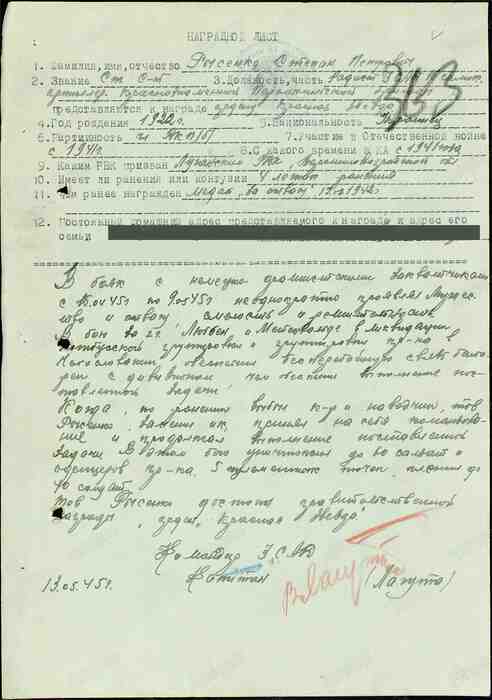 НАГРАДНОЙ ЛИСТ
1. Фамилия, имя, отчество Рысенко Степан Петрович
2. Звание Ст. С-т 3. Должность, часть Радист
артиллер. Краснознаменной
представляется к награде ордену Красная Звезда
4. Год рождения 1922 г. 5. Национальность Украинец
6. Партийность чл ВКП(б) 7. Участие в Отечественной войне
с 1941 г. 8. С какого времени в КА с 1941 года
9. Каким РВК призван РВК, Ворошиловградской обл
10. Имеет ли ранения или контузии 4 легких ранения
11. Чем ранее награжден медаль "За отвагу" 1942г.
12. Постоянный домашний адрес представляемого к награде и адрес его
семьи
В боях с немецко фашистскими захватчиками
с 15.04.45г по 9.05.45г неоднократно проявлял мужес-
тво и отвагу смелость и решительность.
В бою за г.г. Люббен и в ликвидации
группировки и группировки пр-ка в
Чехословакии обеспечил бесперебойную связь бата-
реи с дивизионом чем обеспечил выполнение пос-
тавленной задачи.
Когда, по ранению выбыл к-р и наводчик, тов
Рысенко, заменил их, принял на себя командова-
ние и продолжал выполнение поставленной
задачи. В этом бою уничтожил до 80 солдат и
офицеров пр-ка, 5 пулеметных точек, пленил до
40 солдат.
Тов Рысенко достоин правительственной
награды "орден Красная Звезда".
Командир
Капитан (Лагута)
13.05.45г.